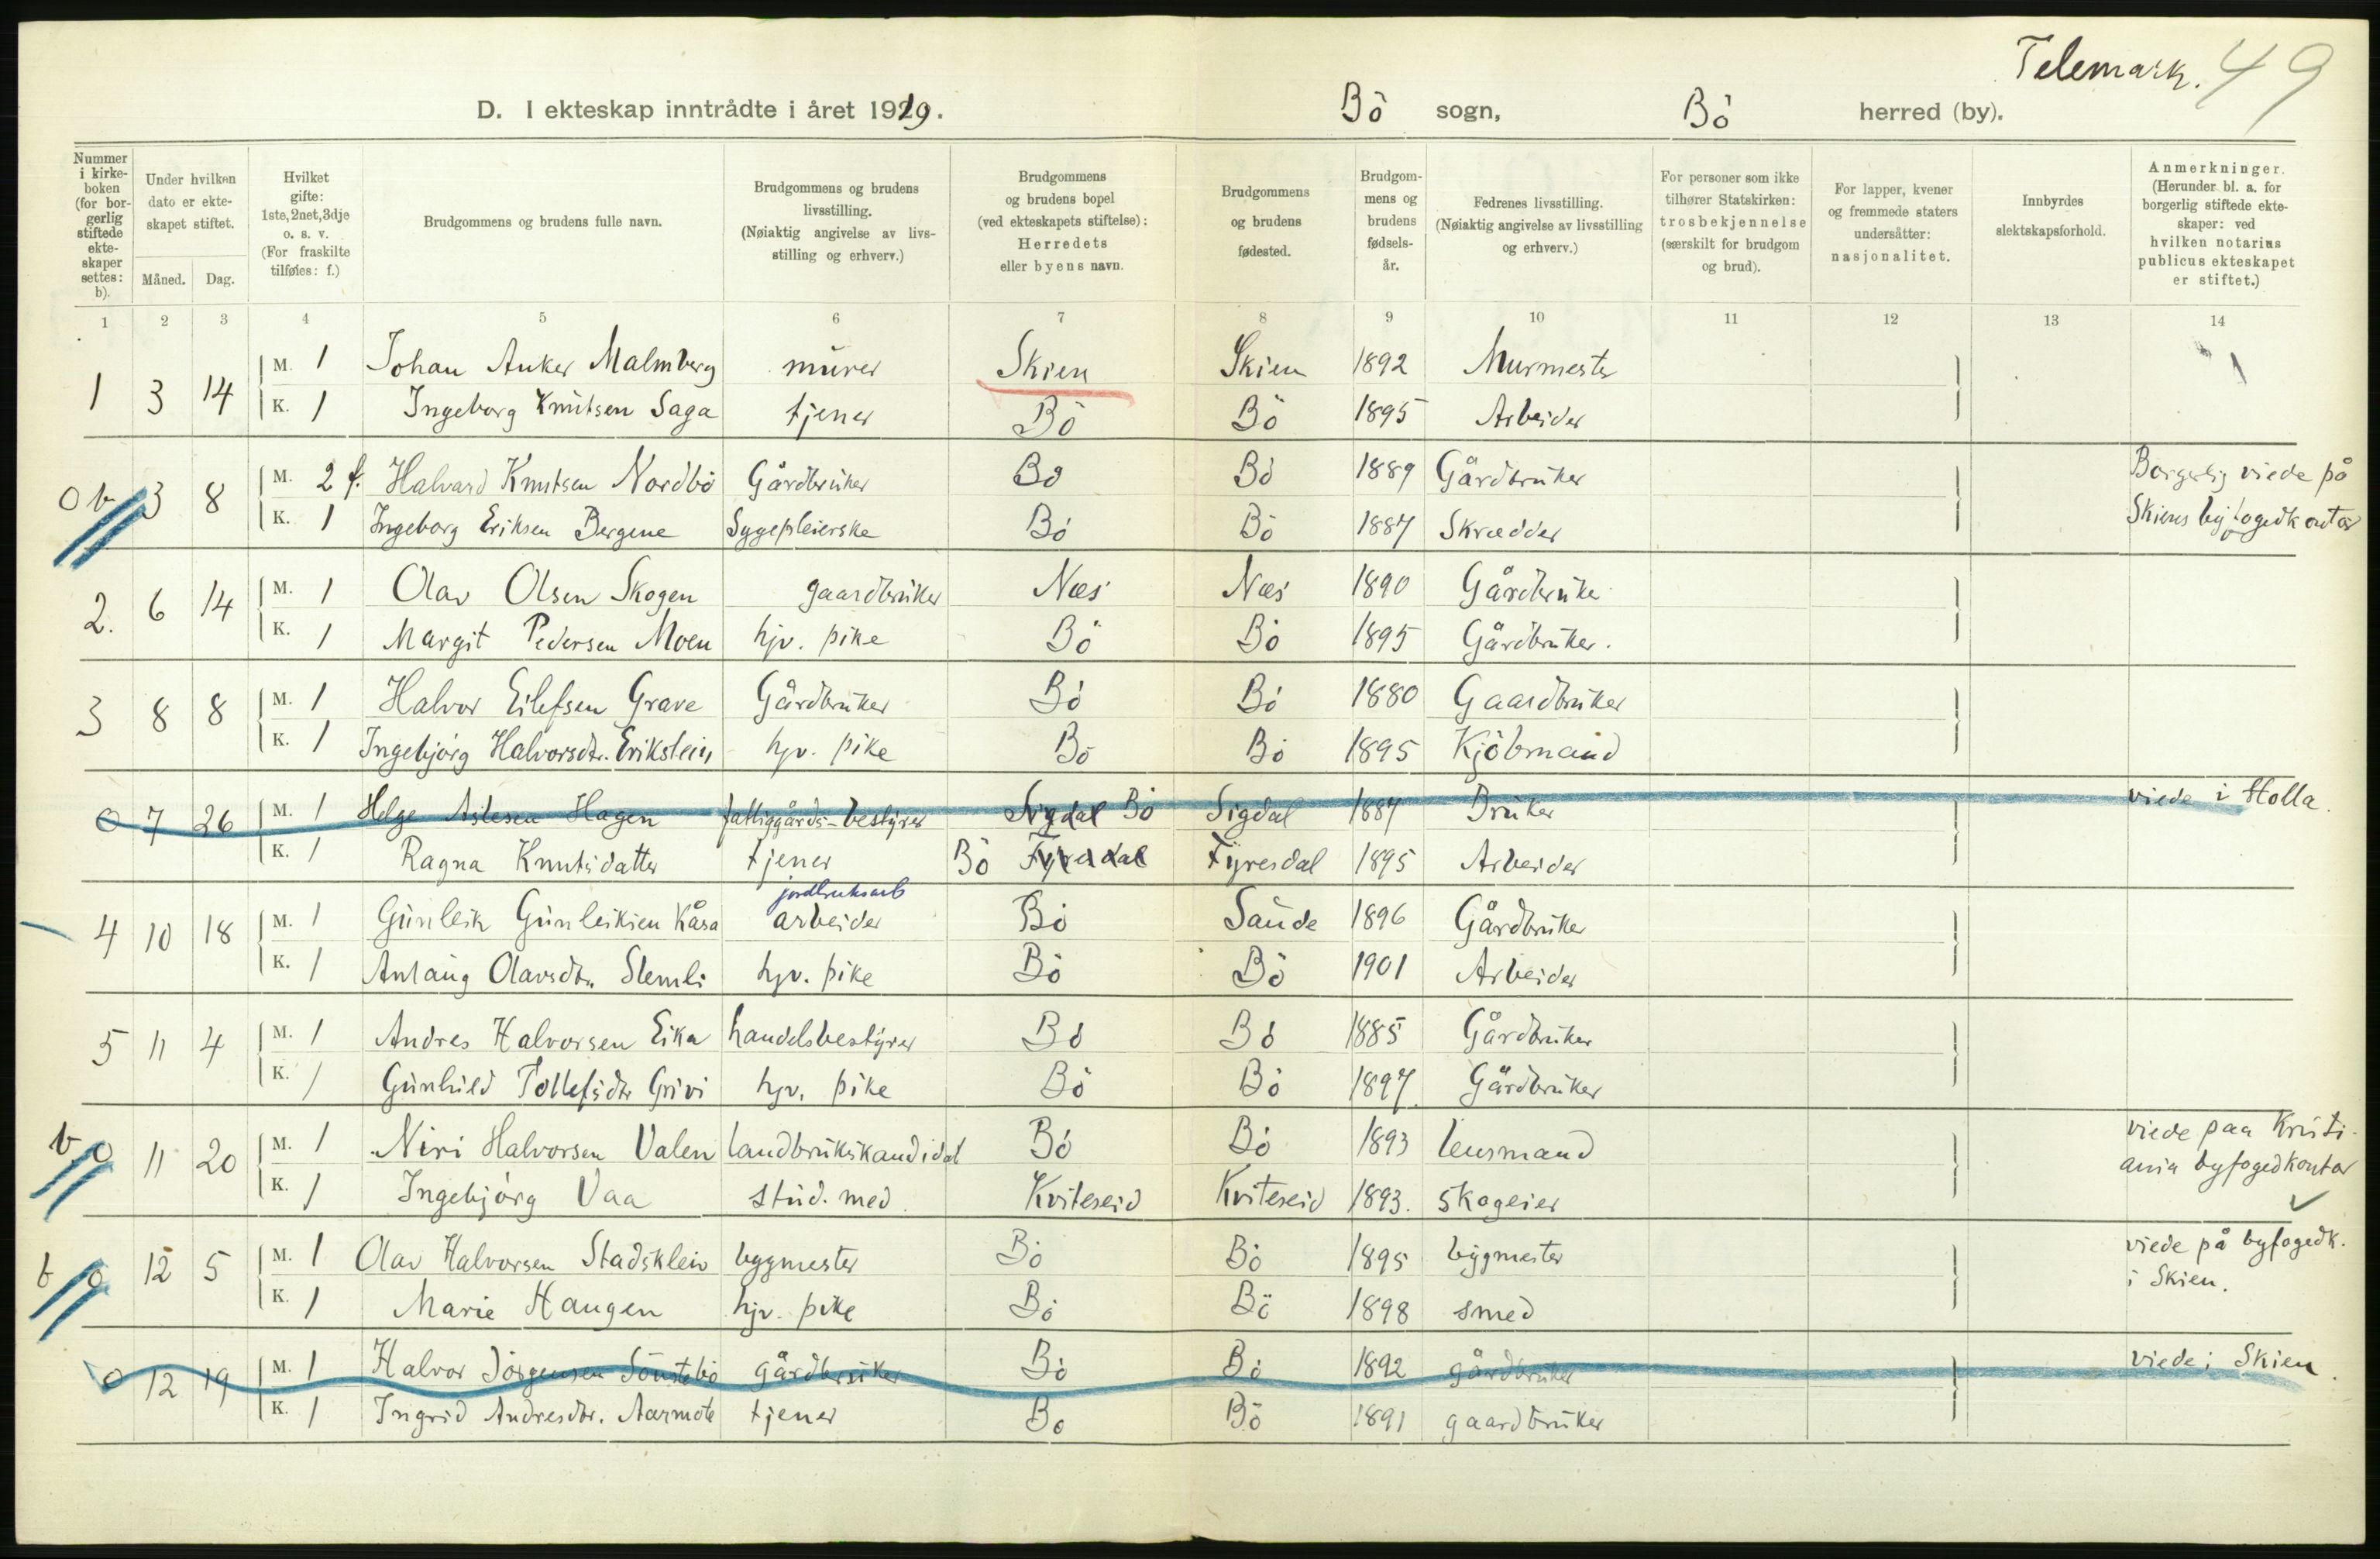 Telemark. 49
D. I ekteskap inntrådte i året 1919. Bö sogn, Bö herred (by).
Nummer i kirke-boken (for bor-gerlig stiftede ekte-skaper settes: b). Under hvilken dato er ekte-skapet stiftet. Måned. Dag. Hvilket gifte: 1ste, 2net, 3dje o. s. v. (For fraskilte tilføies: f.) Brudgommens og brudens fulle navn. Brudgommens og brudens livsstilling. (Nøiaktig angivelse av livs-stilling og erhverv.) Brudgommens og brudens bopel (ved ekteskapets stiftelse): Herredets eller byens navn. Brudgommens og brudens fødested. Brudgom-mens og brudens fødsels-år. Fedrenes livsstilling. (Nøiaktig angivelse av livsstilling og erhverv.) For personer som ikke tilhører Statskirken: trosbekjennelse (særskilt for brudgom og brud). For lapper, kvener og fremmede staters undersåtter: nasjonalitet. Innbyrdes slektskapsforhold. Anmerkninger. (Herunder bl. a. for borgerlig stiftede ekte-skaper: ved hvilken notarius publicus ekteskapet er stiftet.)
1 2 3 4 5 6 7 8 9 10 11 12 13 14
1 3 14 M. 1 Johan Anker Malmberg murer Skien Skien 1892 Murmester
K. 1 Ingeborg Knutsen Saga tjener Bö Bö 1895 Arbeider
0 b 3 8 M. 2 f. Halvard Knutsen Nordbö Gårdbruker Bö Bö 1889 Gårdbruker Borgerlig viede på
K. 1 Ingeborg Eriksen Bergene Sygepleierske Bö Bö 1887 Skrædder Skiens byfogedkontor
2. 6 14 M. 1 Olav Olsen Skogen gaardbruker Næs Næs 1890 Gårdbruker
K. 1 Margit Pedersen Moen hjv. pike Bö Bö 1895 Gårdbruker.
3 8 8 M. 1 Halvor Eilefsen Grave Gårdbruker Bö Bö 1880 Gaardbruker
K. 1 Ingebjörg Halvorsdtr. Erikstein hjv. pike Bö Bö 1895 Kjöbmand
0 7 26 M. 1 Helge Aslesen Hagen fattiggårds-bestyrer Sigdal Bö Sigdal 1887 Bruker viede i Holla.
K. 1 Ragna Knutsdatter tjener Bö Fyresdal Fyresdal 1895 Arbeider
jordbruksarb
4 10 18 M. 1 Gunleik Gunleiksen Kåsa arbeider Bö Saude 1896 Gårdbruker
K. 1 Aslaug Olavsdtr. Slemli hjv. pike Bö Bö 1901 Arbeider
5 11 4 M. 1 Andres Halvorsen Eika handelsbestyrer Bö Bö 1885 Gårdbruker
K. 1 Gunhild Tollefsdtr Grivi hjv. pike Bö Bö 1897. Gårdbruker
b. 0 11 20 M. 1 Niri Halvorsen Valen landbrukskandidat Bö Bö 1893 lensmand viede paa Kristi-
K. 1 Ingebjörg Vaa stud. med. Kviteseid Kviteseid 1893. skogeier ania byfogedkontor
b 0 12 5 M. 1 Olav Halvorsen Stadskleiv bygmester Bö Bö 1895 bygmester viede på byfogedk.
K. 1 Marie Haugen hjv. pike Bö Bö 1898 smed i Skien.
0 12 19 M. 1 Halvor Jörgensen Sönstebö gårdbruker Bö Bö 1892 gårdbruker viede i Skien.
K. 1 Ingrid Andresdtr. Aarmote tjener Bö Bö 1891 gaardbruker